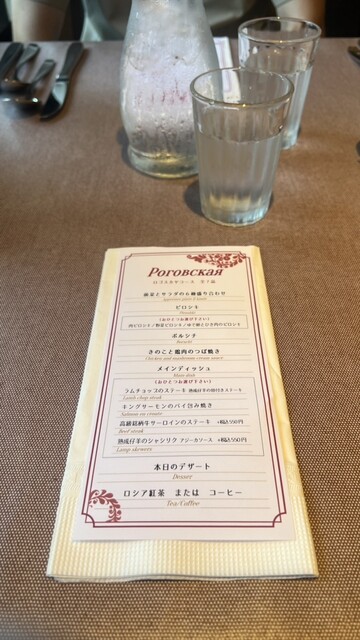 Роговская
ロゴスキヤコース 全7品
前菜とサラダの6種盛り合わせ
ピロシキ
Piroshki
(おひとつお選び下さい)
ボルシチ
Borscht
きのこと鶏肉のつぼ焼き
Chicken and mushroom cream sauce
メインディッシュ
Main dish
(おひとつお選び下さい)
ラムチョップのステーキ 熟成仔羊の骨付きステーキ
Lamb chop steak
キングサーモンのパイ包み焼き
Salmon en croûte
高級銘柄牛サーロインのステーキ +税込550円
Beef steak
熟成仔羊のシャシリク アジーカソース +税込550円
Lamp skewers
本日のデザート
Desser
ロシア紅茶 または コーヒー
Tea/Coffee